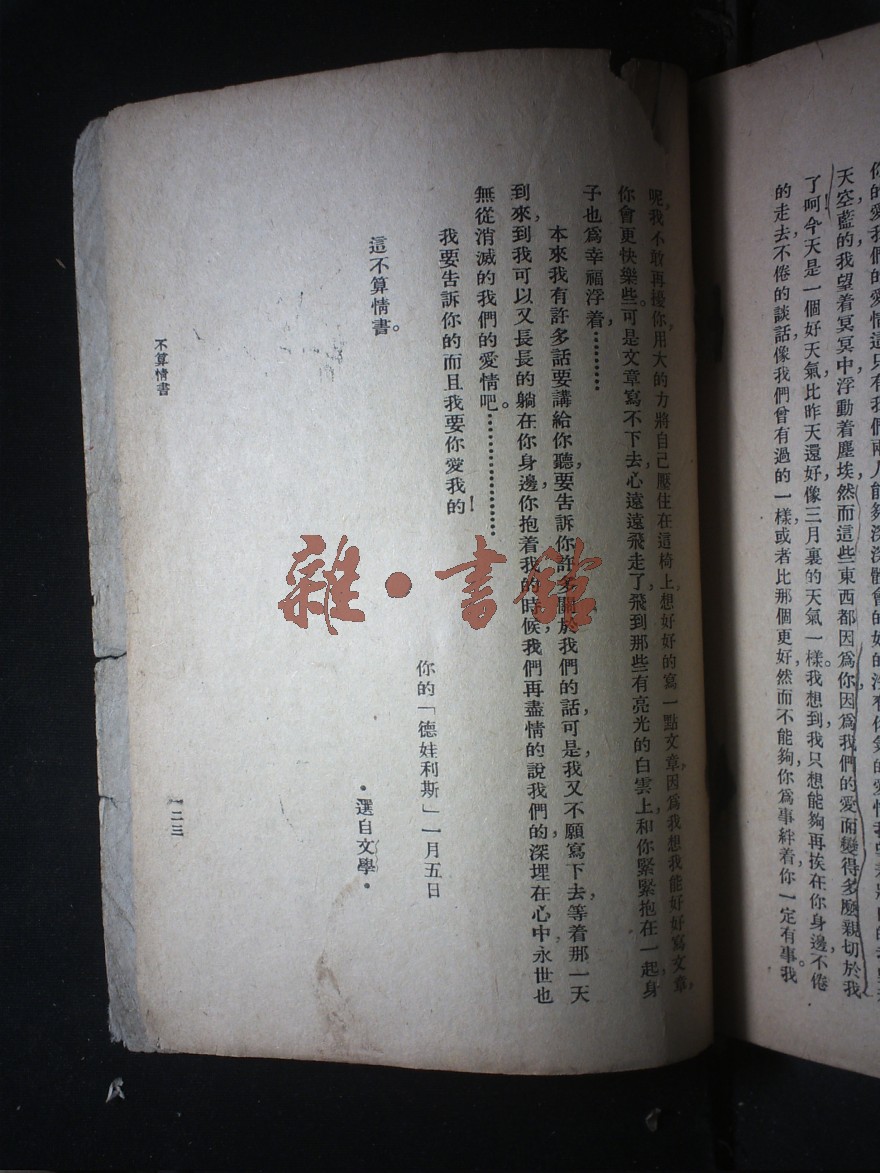 天空藍的,我望着冥冥中浮動着塵埃,然而這些東西都因爲你,因爲我們的愛而變得多麼親切於我
了呵!今天是一個好天氣,比昨天還好,像三月裏的天氣一樣。我想到,我只想能夠再挨在你身邊,不倦
的走去,不倦的談話,像我們曾有過的一樣,或者比那個更好,然而不能夠,你爲事絆着,你一定有事。我
呢,我不敢再擾你,用大的力將自己壓住在這椅上,想好好的寫一點文章,因爲我想我能好好寫文章,
你會更快樂些。可是文章寫不下去,心遠遠飛走了,飛到那些有亮光的白雲上,和你緊緊抱在一起,身
子也爲幸福浮着………
本來我有許多話要講給你聽,要告訴你許多關於我們的話,可是,我又不願寫下去,等着那一天
到來,到我可以又長長的躺在你身邊,你抱着我的時候,我們再盡情的說我們的,深埋在心中,永世也
無從消滅的我們的愛情吧。………………
我要告訴你的而且我要你愛我的!
你的「德娃利斯」一月五日
這不算情書。
·選自文學·
不算情書
一二三
雜·書館